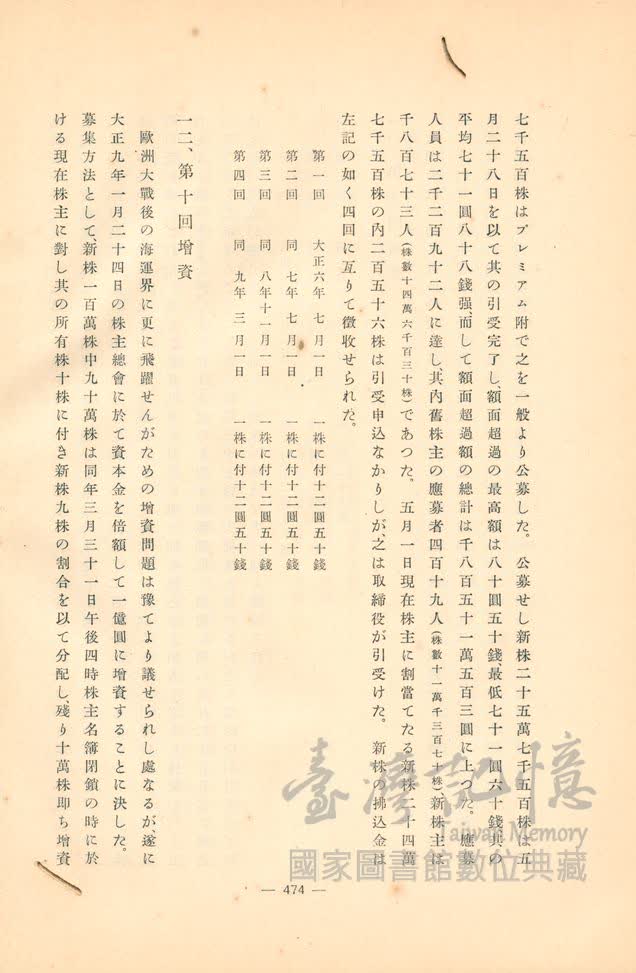 七千五百株はプレミアム附で之を一般より公募した。公募せし新株二十五萬七千五百株は五
月二十八日を以て其の引受完了し、額面超過の最高額は八十圓五十錢、最低七十一圓六十錢其の
平均七十一圓八十八錢强、而して額面超過額の總計は千八百五十一萬五百三圓に上つた。應募
人員は二千二百九十二人に達し、其內舊株主の應募者四百十九人(株數十一萬千三百七十株)、新株主は
千八百七十三人(株數十四萬六千百三十株)であつた。五月一日現在株主に割當てたる新株二十四萬
七千五百株の內二百五十六株は引受申込なかりしが、之は取締役が引受けた。新株の拂込金は
左記の如く四回に亙りて徵收せられた。
第一回 大正六年 七月一日 一株に付十二圓五十錢
第二回 同 七年 七月一日 一株に付十二圓五十錢
第三回 同 八年十一月一日 一株に付十二圓五十錢
第四回 同 九年 三月一日 一株に付十二圓五十錢
一二、第十回增資
歐洲大戰後の海運界に更に飛躍せんがための增資問題は豫てより議せられし處なるが、遂に
大正九年一月二十四日の株主總會に於て資本金を倍額して一億圓に增資することに決した。
募集方法として、新株一百萬株中九十萬株は同年三月三十一日午後四時株主名簿閉鎖の時に於
ける現在株主に對し其の所有株十株に付き新株九株の割合を以て分配し、殘り十萬株卽ち增資
— 474 —
臺灣記憶
Taiwan Memory
國家圖書館數位典藏